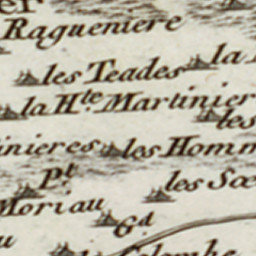 Ragueniere
les Teades
la
la H.te Martinier
les
inieres
les Homm
P.t
les Sœ
Moriau
G.d
Colombe